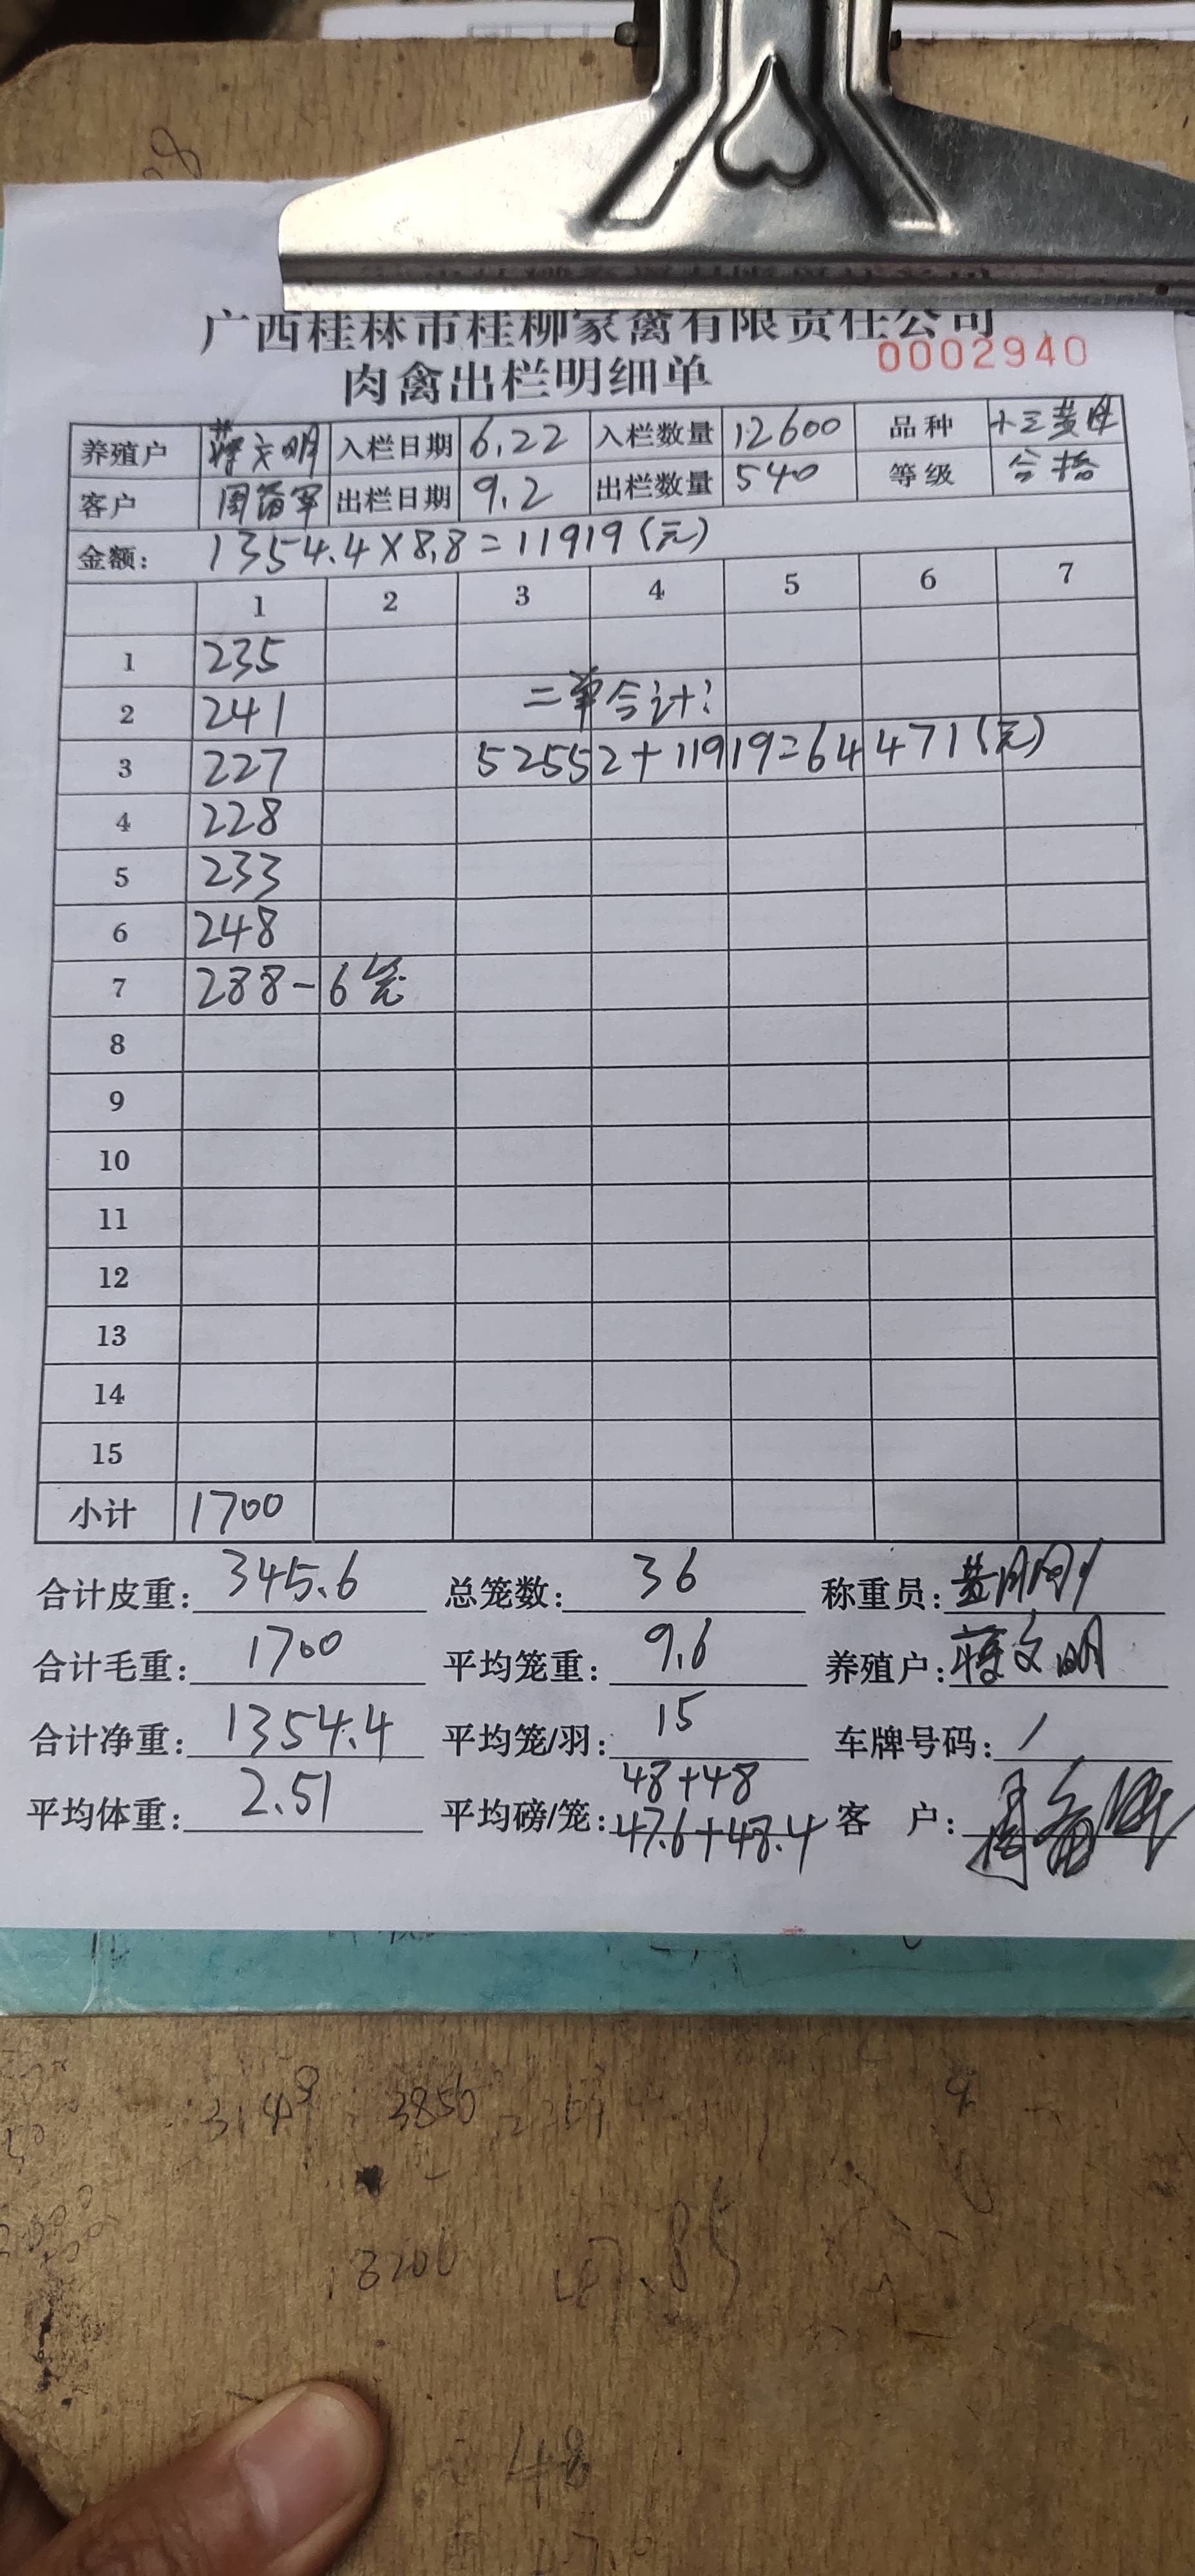 广西桂林市桂柳家禽有限责任公司
肉禽出栏明细单 0002940
养殖户 蒋文明 入栏日期 6.22 入栏数量 12600 品种 十三黄母
客户 出栏日期 9.2 出栏数量 540 等级 合格
金额: 1354.4×8.8=11919(元)
1 2 3 4 5 6 7
1 235
2 241 二单合计:
3 227 52552+11919=64471(元)
4 228
5 233
6 248
7 288-6笼
8
9
10
11
12
13
14
15
小计 1700
合计皮重: 345.6 总笼数: 36 称重员:
合计毛重: 1700 平均笼重: 9.6 养殖户: 蒋文明
合计净重: 1354.4 平均笼/羽: 15 车牌号码: /
48+48
平均体重: 2.51 平均磅/笼: 47.6+48.4 客 户:
3850
3200
47.85
48